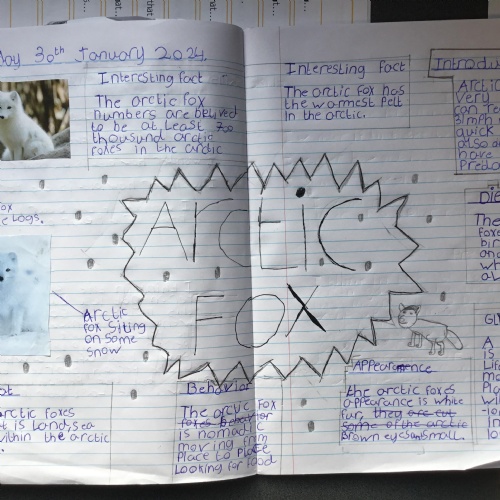 day 30th January 2024.
Interesting fact
The arctic fox
numbers are belived
to be at least 700
thousund arctic
foxes in the arctic
Interesting fact
The arctic fox has
the warmest pelt
in the arctic.
Introdu
Arctic
very
can r
31mph
quick
also a
have
Preda
ARCTIC
FOX
fox
logs.
Arctic
fox siting
on some
snow
Die
The
foxe
bir
and
wh
al
arctic foxes
t is land,sea
within the arctic
Behavior
The arctic fox
foxes behavior
is nomadic
moving from
Place to Place
Looking for food
APPearence
the arctic foxes
appearance is white
fur, they are eat
some of the arctic
brown eyes and small.
A
is
Life
ma
Pla
wit
In
lo